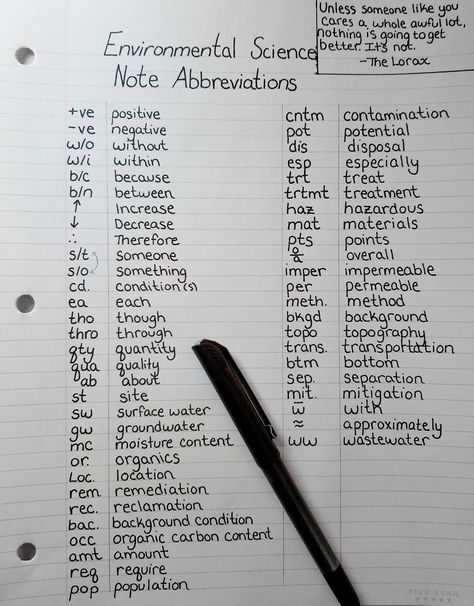 Unless someone like you
cares a whole awful lot,
nothing is going to get
better. It's not.
-The Lorax
Environmental Science
Note Abbreviations
+ve positive
-ve negative
w/o without
w/i within
b/c because
b/n between
↑ Increase
↓ Decrease
∴ Therefore
s/t someone
s/o something
cd. condition(s)
ea each
tho though
thro through
qty quantity
qua quality
ab about
st site
sw surface water
gw groundwater
mc moisture content
or. organics
Loc. location
rem. remediation
rec. reclamation
bac. background condition
occ organic carbon content
amt amount
req require
pop population
cntm contamination
pot potential
dis disposal
esp especially
trt treat
trtmt treatment
haz hazardous
mat materials
pts points
overall
imper impermeable
per permeable
meth. method
bkgd background
topo topography
trans. transportation
btm bottom
sep. separation
mit. mitigation
w̅ with
≈ approximately
ww wastewater
FIVE STAR
★★★★★